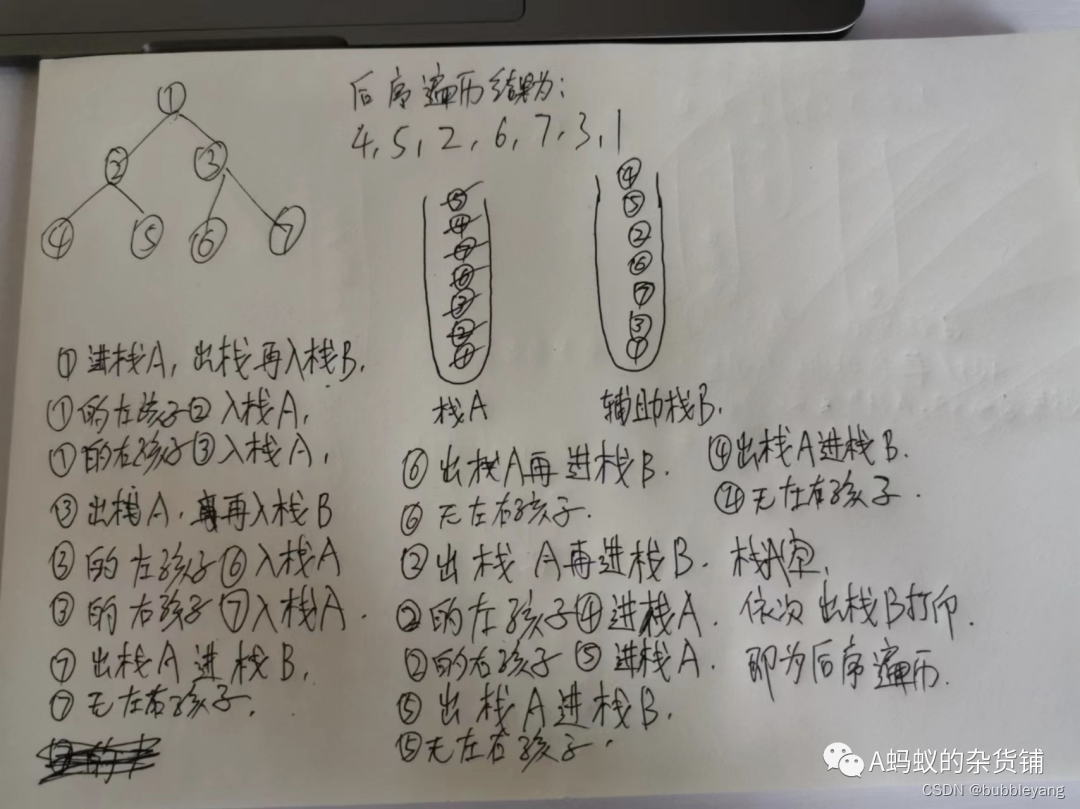 ①
② ③
④ ⑤ ⑥ ⑦
后序遍历结果为:
4, 5, 2, 6, 7, 3, 1
⑤
④
⑦
⑥
③
②
①
栈A
④
⑤
②
⑥
⑦
③
①
辅助栈B.
①进栈A, 出栈再入栈B.
①的左孩子②入栈A,
①的右孩子③入栈A,
③出栈A, 再入栈B
③的左孩子⑥入栈A
③的右孩子⑦入栈A.
⑦出栈A进栈B.
⑦无左右孩子.
⑥出栈A再进栈B.
⑥无左右孩子.
②出栈A再进栈B.
②的左孩子④进栈A.
②的右孩子⑤进栈A.
⑤出栈A进栈B.
⑤无左右孩子.
④出栈A进栈B.
④无左右孩子.
栈A空,
依次出栈B打印.
即为后序遍历.
A蚂蚁的杂货铺
CSDN @bubbleyang